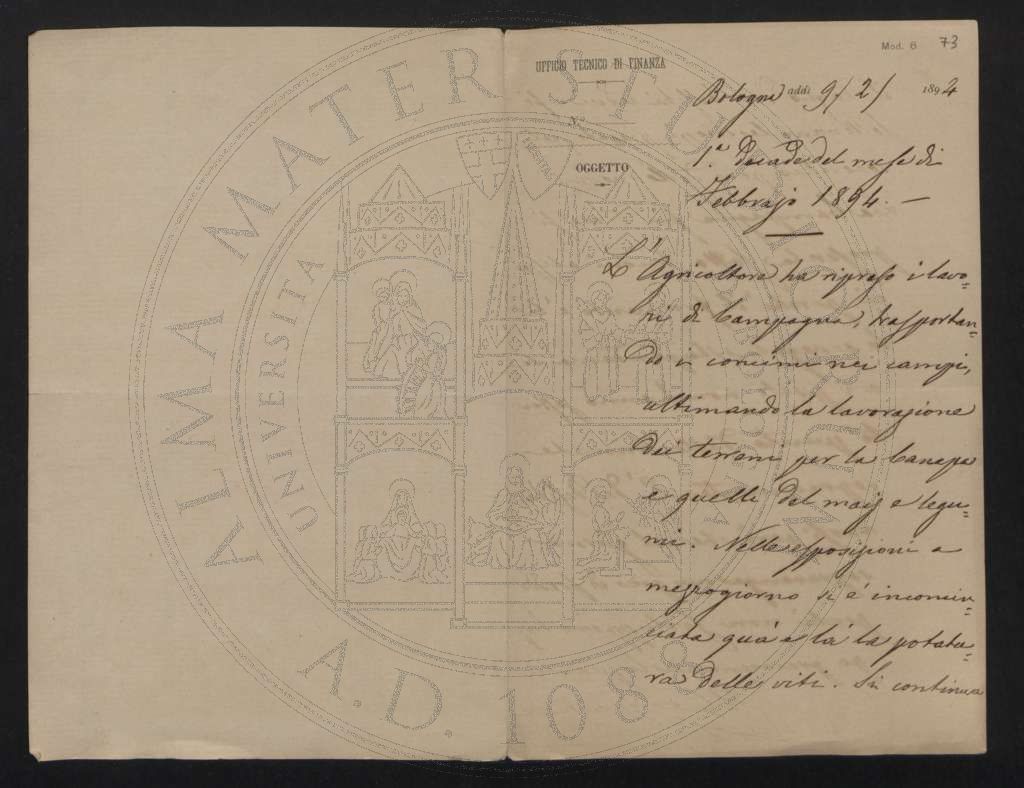 Mod. 6 73
UFFICIO TECNICO DI FINANZA
Bologna addì 9/2/ 1894
N.º
OGGETTO
1.ª Decade del mese di
Febbrajo 1894. —
L'Agricoltore ha ripreso i lavo-
ri di Campagna, trasportan-
do i concimi nei campi,
ultimando la lavorazione
dei terreni per la Canapa
e quelli del maiz e legu-
mi. Nelle esposizioni a
mezzogiorno si è incomin-
ciata quà e là la potatu-
ra delle viti. Si continua
ALMA MATER STUDIORUM
UNIVERSITA
A.D. 1088